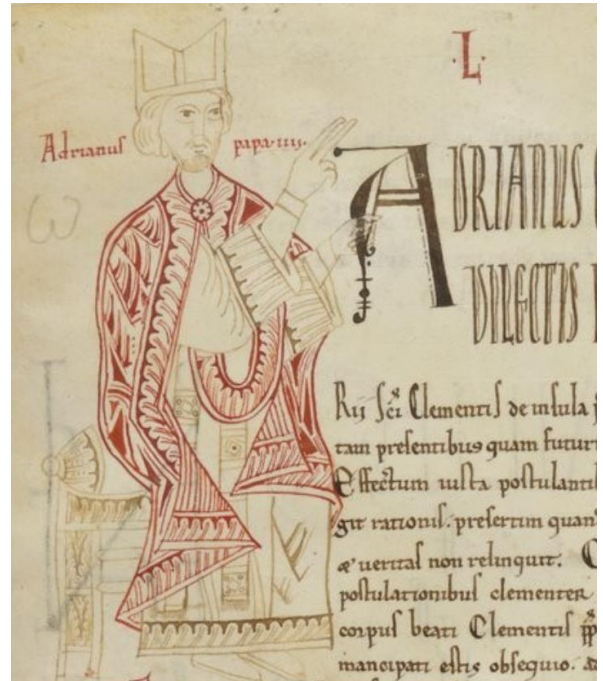 ·L·
Adrianus papa·iiii·
ADRIANUS
DILECTIS
Rii Sci Clementis de insula
tam presentibus quam futuri
Effectum iusta postulantib
git rationis. presertim quan
æ ueritas non relinquit.
postulationibus clementer
corpus beati Clementis pp
mancipati estis obsequio.